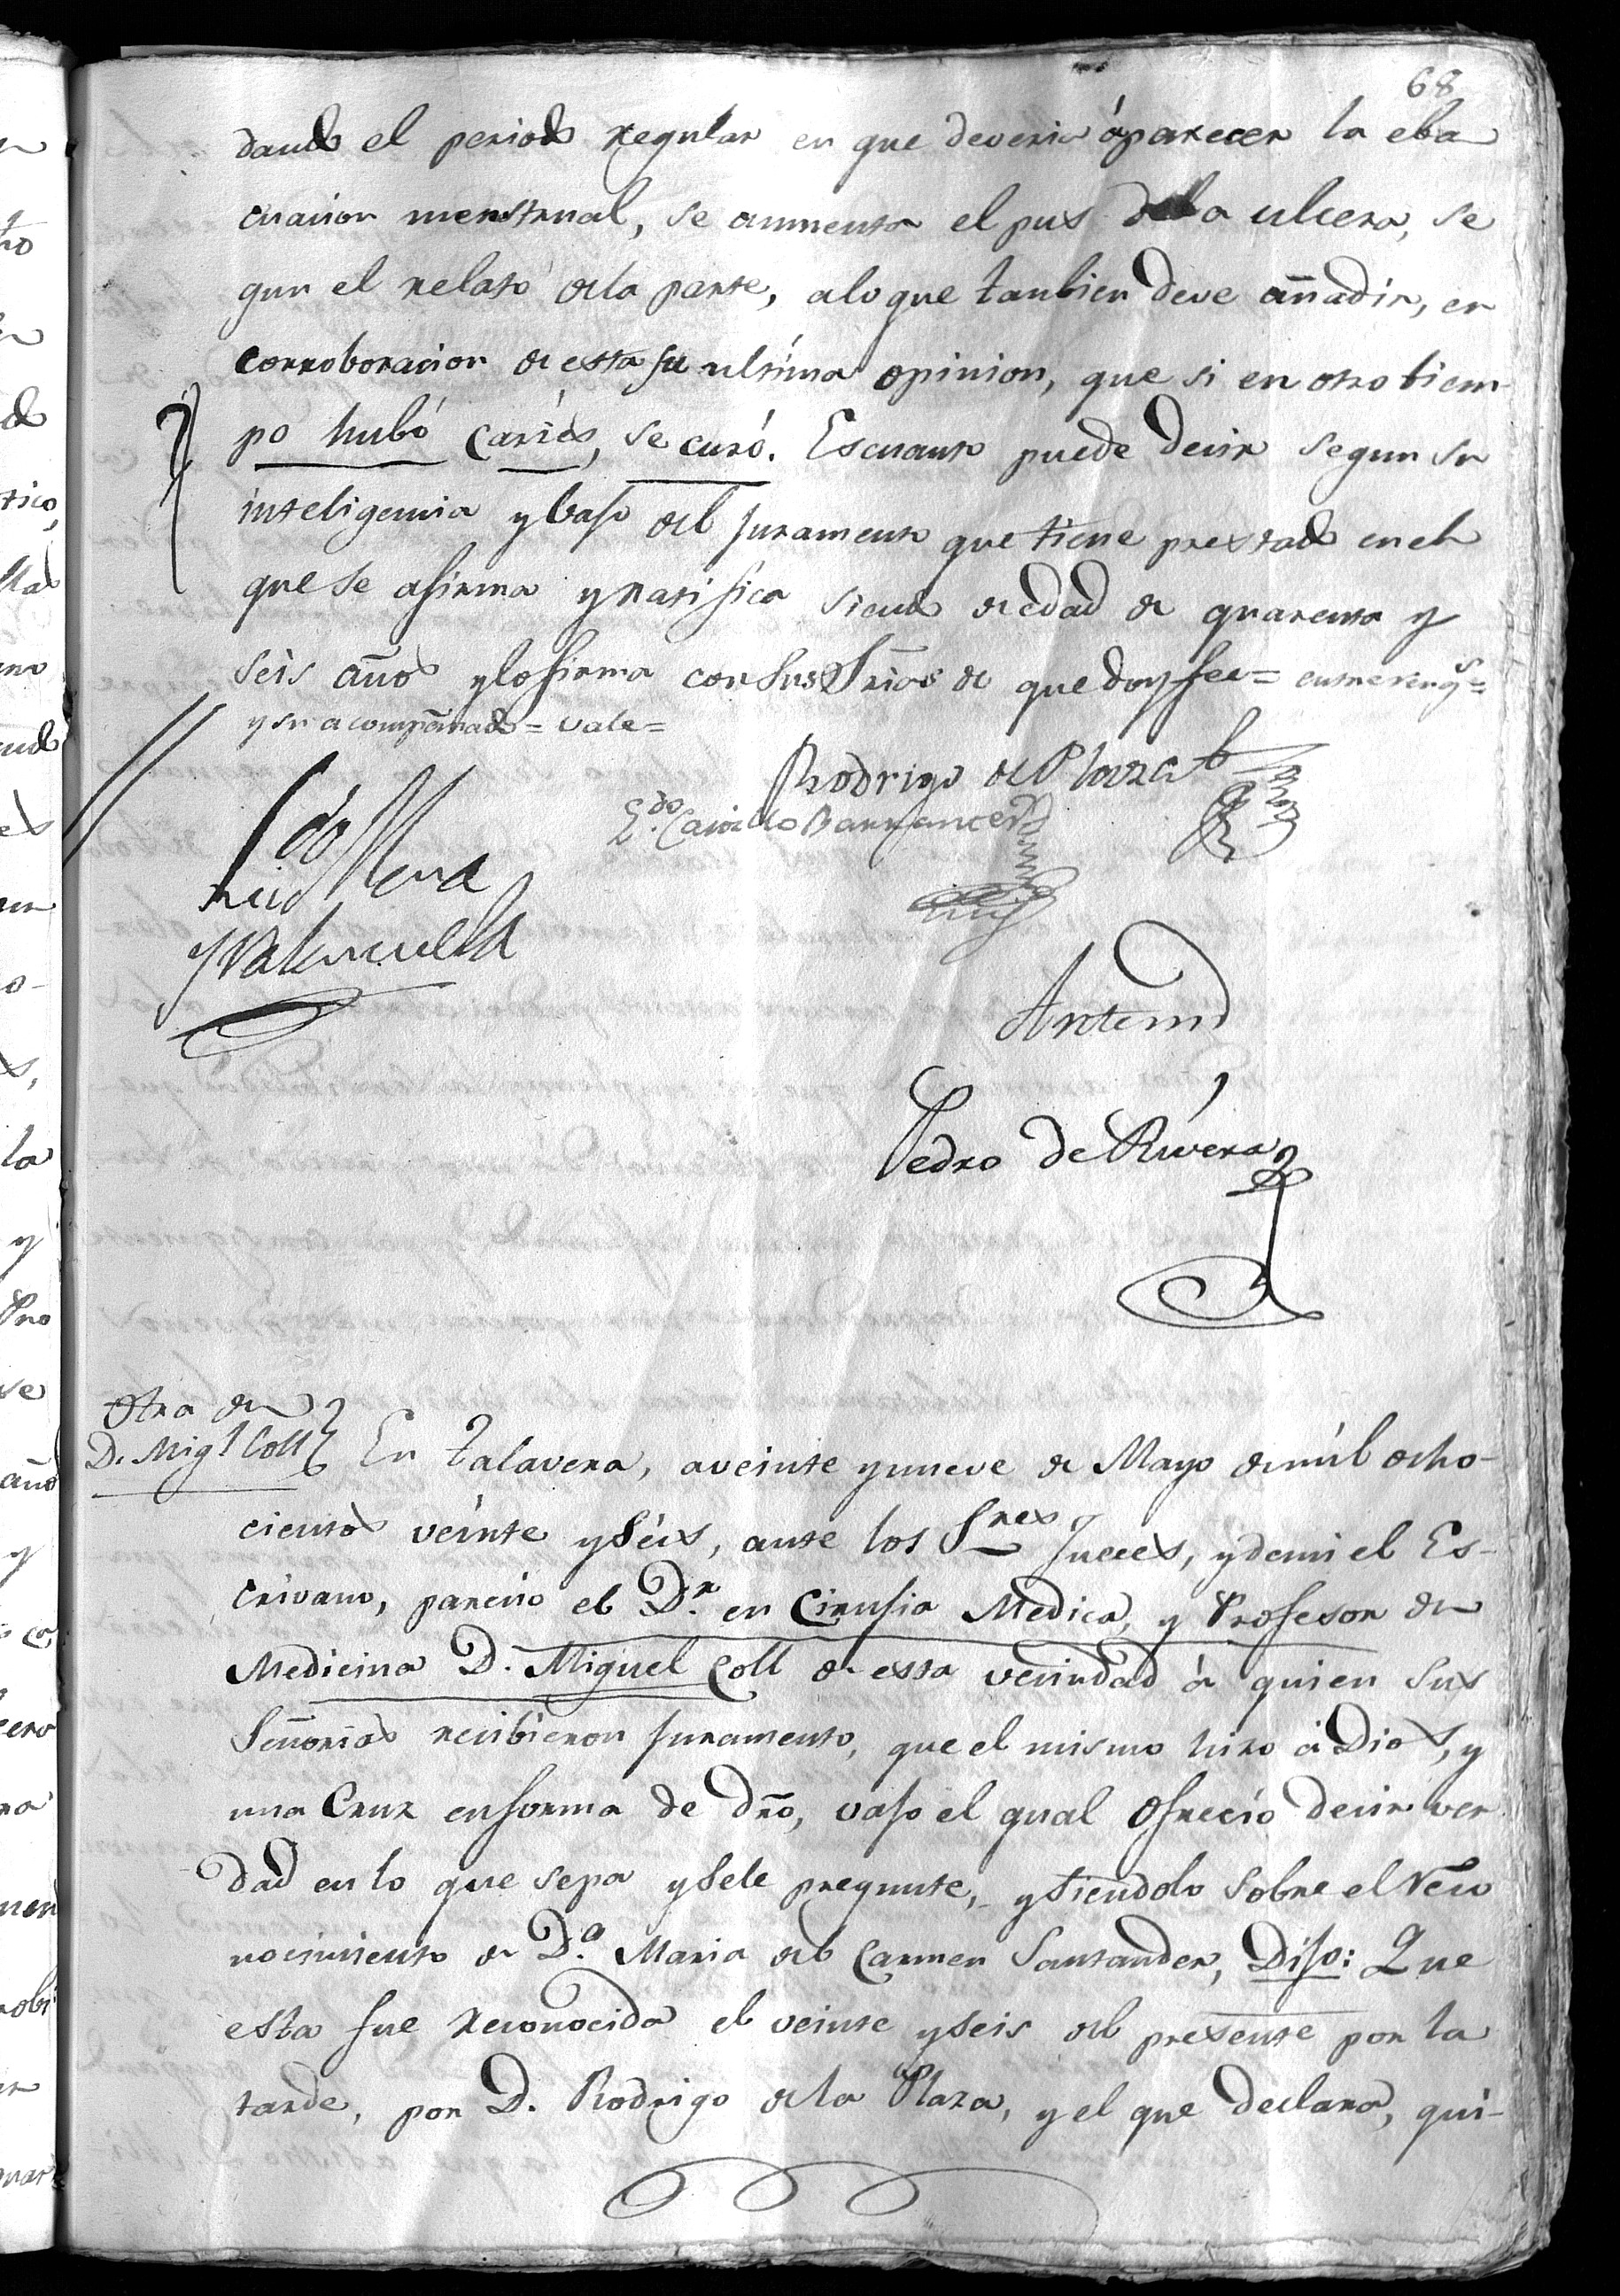 68
dando el periodo regular en que deveria áparecer la eba
cuacion menstrual, se aumenta el pus dela ulcera, se
gun el relato dela parte, alo que tanbien deve añadir, en
corroboracion de esta su ultima opinion, que si en otro tiem-
po hubó Caries, se curó. Escuanto puede decir segun su
inteligencia y bajo del juramento que tiene prestado en el
que se afirma y ratifica siendo de edad de quarenta y
seis años y lo firma con Sus Srias de que doy fee =
y su acompañado = vale =
Rodrigo de Plaza
Ldo Mena
Luis
y Valenzuela
Antemi
Pedro de Rivera
Otra de
D. Migl Coll
En Talavera, a veinte y nueve de Mayo de mil ocho-
cientos veinte y séis, ante los Sres Jueces, y de mi el Es-
crivano, parecio el Dr. en Cirujia Medica, y Profesor de
Medicina D. Miguel Coll de esta vecindad á quien Sus
Señorias recibieron juramento, que el mismo hizo á Dios, y
una Cruz en forma de dro, vajo el qual Ofrecio decir ver
dad en lo que sepa y sele pregunte, y siendolo sobre el reco
nocimiento de D.a Maria del Carmen Santander, Dijo: Que
esta fue reconocida el veinte y seis del presente por la
tarde, por D. Rodrigo de la Plaza, y el que declara, qui-